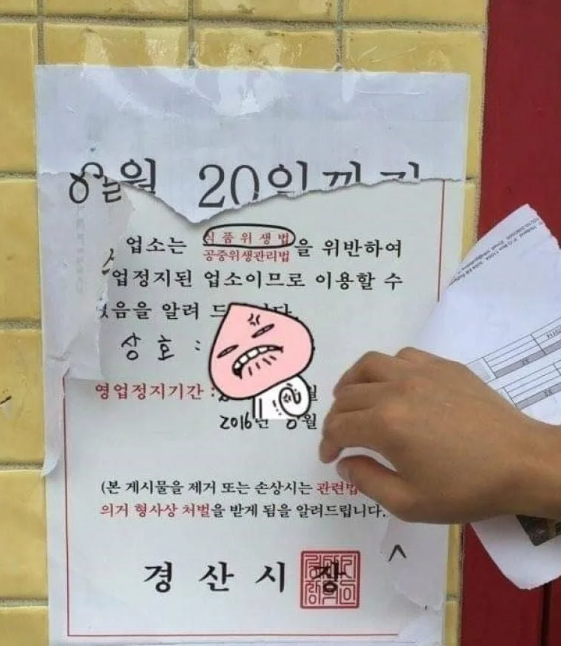 8월 20일까지
업소는 식품위생법 을 위반하여
공중위생관리법
업정지된 업소이므로 이용할 수
음을 알려 드
상호 :
영업정지기간 : 월
2016년 8월
(본 게시물을 제거 또는 손상시는 관련법
의거 형사상 처벌을 받게 됨을 알려드립니다.
경산시장